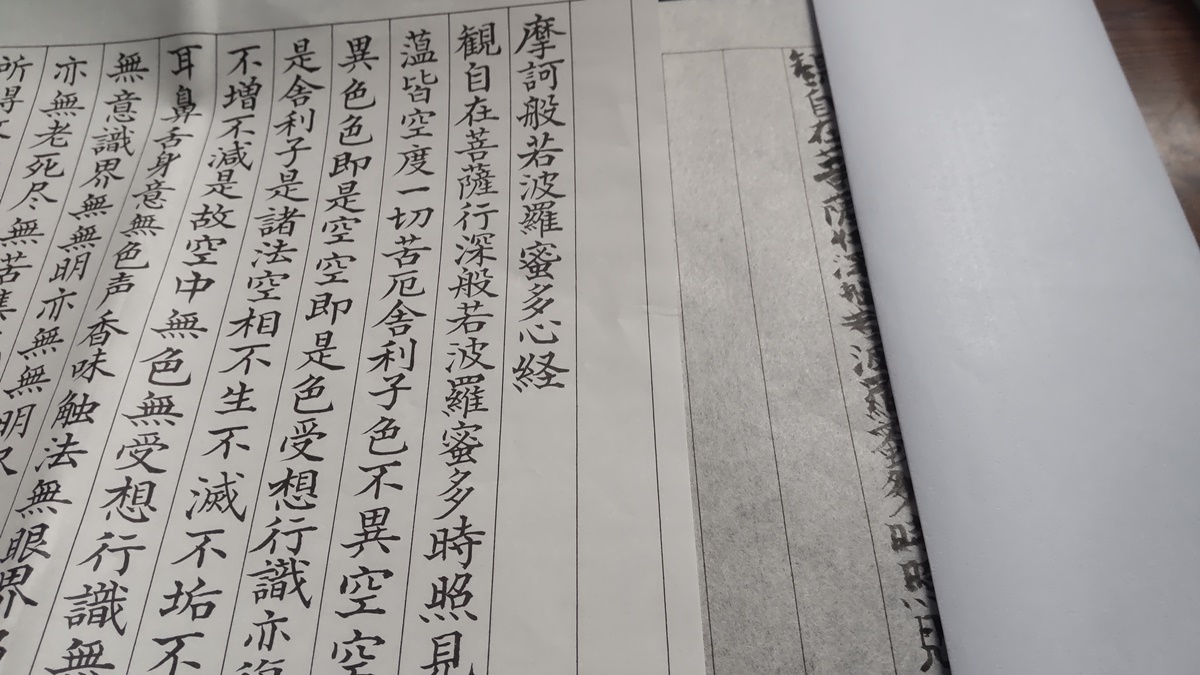 観自在菩薩行深般若波羅蜜多時照見
摩訶般若波羅蜜多心経
観自在菩薩行深般若波羅蜜多時照見
蘊皆空度一切苦厄舎利子色不異空空
異色色即是空空即是色受想行識亦復
是舎利子是諸法空相不生不滅不垢不
不増不減是故空中無色無受想行識無
耳鼻舌身意無色声香味触法無眼界
無意識界無無明亦無無明
亦無老死尽無苦集
所得